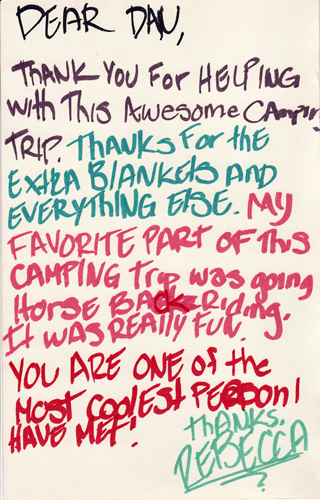 DEAR DAN,
THANK YOU FOR HELPING
with This Awesome CAmpin
TRIP. THANKS FOR the
EXtRA BLANKEtS AND
EVERYTHING ELSE. MY
FAVORITE PART OF This
CAMPING trip was going
Horse BACK RIDING.
It WAS REALLY FUN.
YOU ARE ONE of the
Most COOLESt PERSON I
HAVE MET!
thANKS.
REBECCA